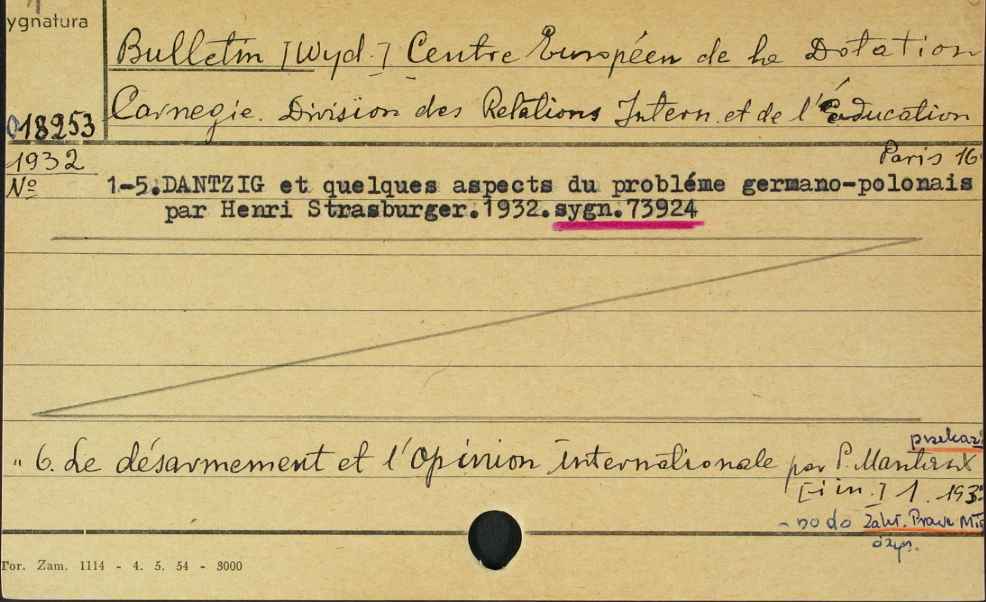 ygnatura
Bulletin [Wyd.] Centre Européen de la Dotation
Carnegie. Division des Relations Intern. et de l'Éducation
018253
1932
Paris 16
Nº
1-5.DANTZIG et quelques aspects du probléme germano-polonais
par Henri Strasburger.1932.sygn.73924
przekaz
" 6. Le désarmement et l'Opinion internationale par P. Mantoux
[i in.] 1. 193
- no do Zakł. Prawa Mię
Tor. Zam. 1114 - 4. 5. 54 - 3000